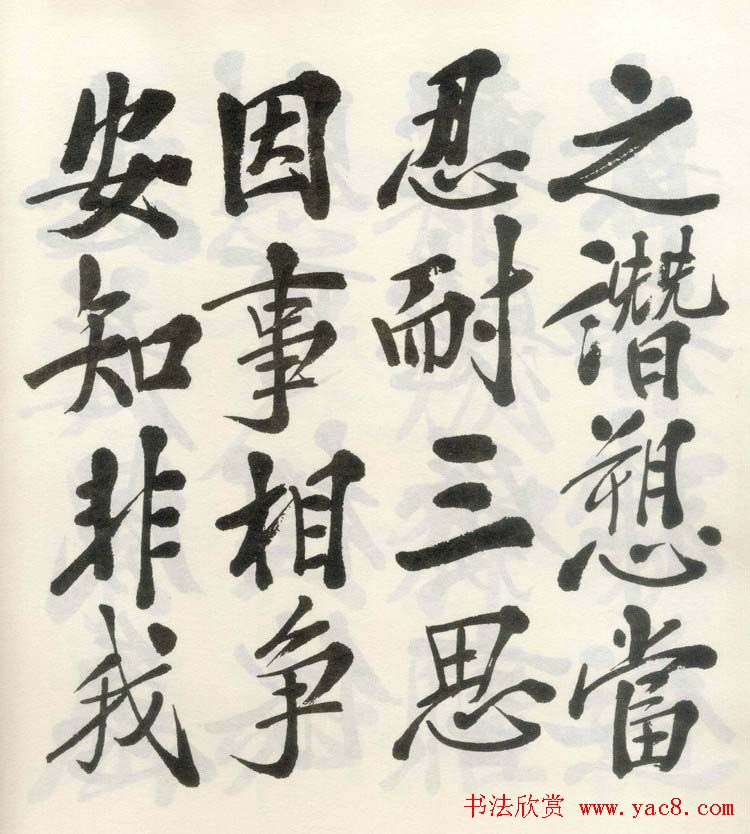 之譖愬當
忍耐三思
因事相争
安知非我
书法欣赏 www.yac8.com